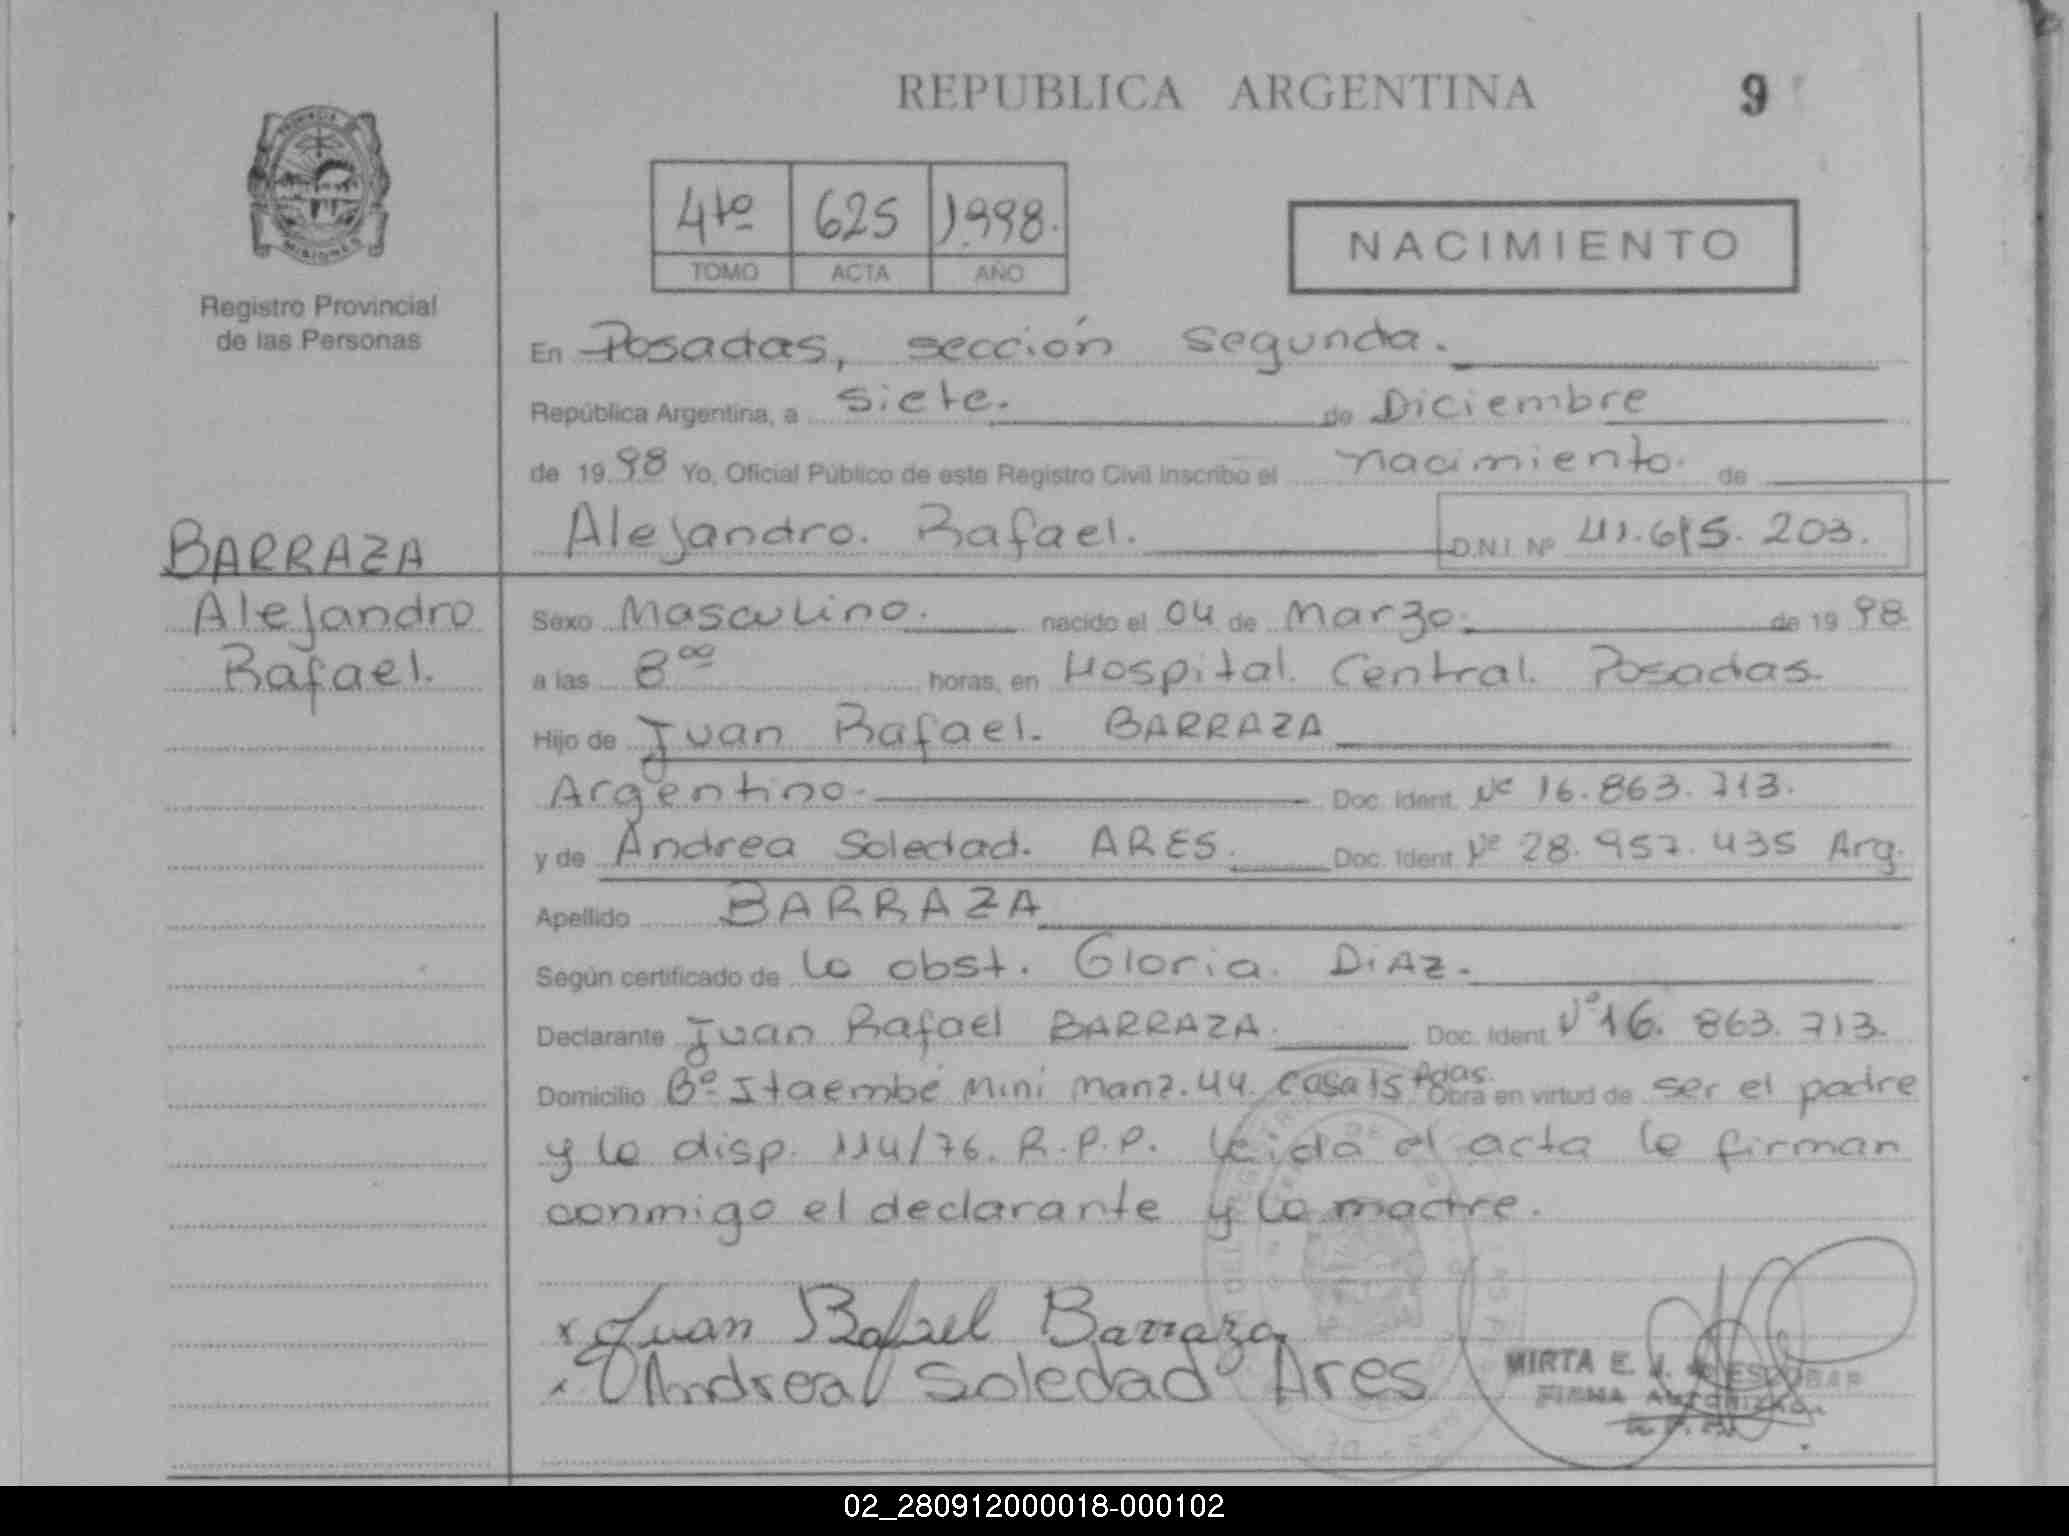 REPUBLICA ARGENTINA
9
4to 625 1998.
TOMO ACTA AÑO
NACIMIENTO
PROVINCIA DE
MISIONES
Registro Provincial
de las Personas
En Posadas, sección segunda.
República Argentina, a siete. de Diciembre
de 1998 Yo, Oficial Público de este Registro Civil inscribo el nacimiento. de
Alejandro. Rafael. D.N.I. Nº 41.615.203.
BARRAZA
Alejandro
Rafael.
Sexo Masculino. nacido el 04 de Marzo. de 1998.
a las 8 00 horas, en Hospital. Central. Posadas.
Hijo de Juan Rafael. BARRAZA
Argentino. Doc. Ident. Nº 16.863.713.
y de Andrea Soledad. ARES. Doc. Ident. Nº 28.957.435 Arg.
Apellido BARRAZA
Según certificado de la obst. Gloria. DiAZ.
Declarante Juan Rafael BARRAZA. Doc. Ident. Nº 16.863.713.
Domicilio Bº Itaembé Mini Manz. 44. Casa 15 Pdas. Obra en virtud de ser el padre
y la disp. 114/76. R.P.P. Leida el acta la firman
conmigo el declarante y la madre.
x Juan Rafael Barraza
x Andrea Soledad Ares
MIRTA E. ESCOBAR
FIRMA AUTORIZADA
02_280912000018-000102